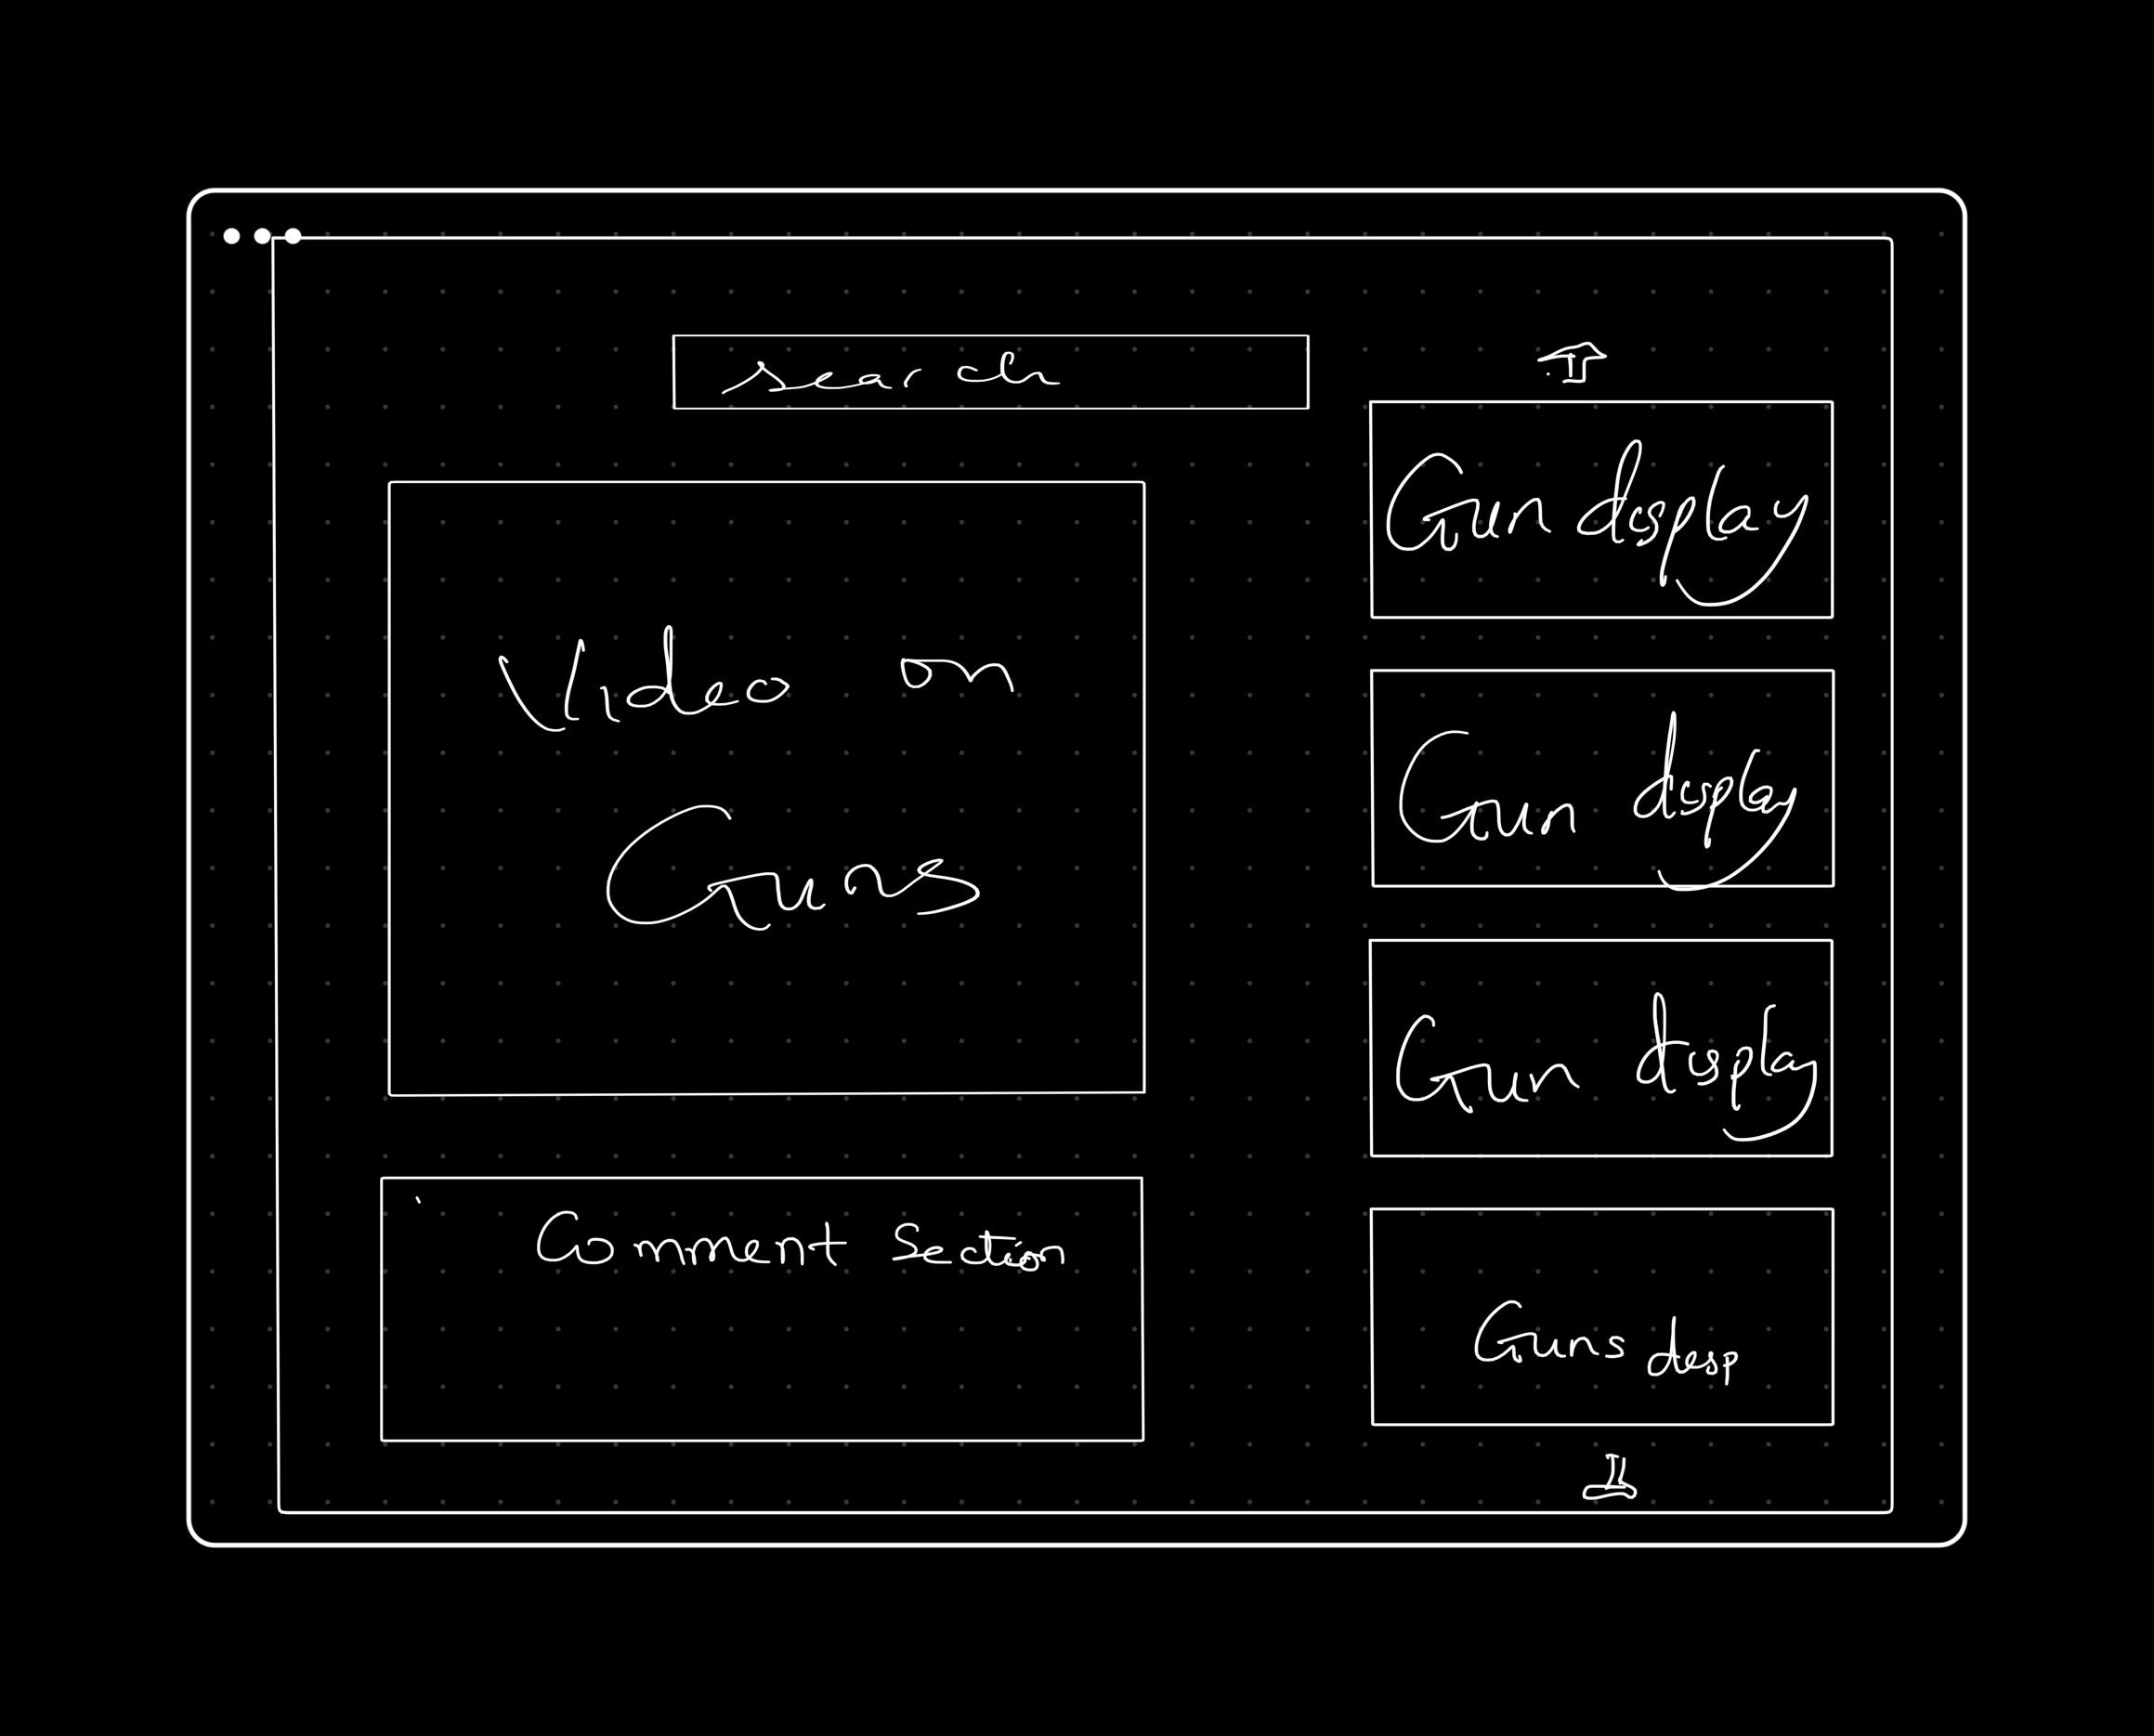 search
Video on
Guns
Comment Section
Gun display
Gun display
Gun display
Guns disp